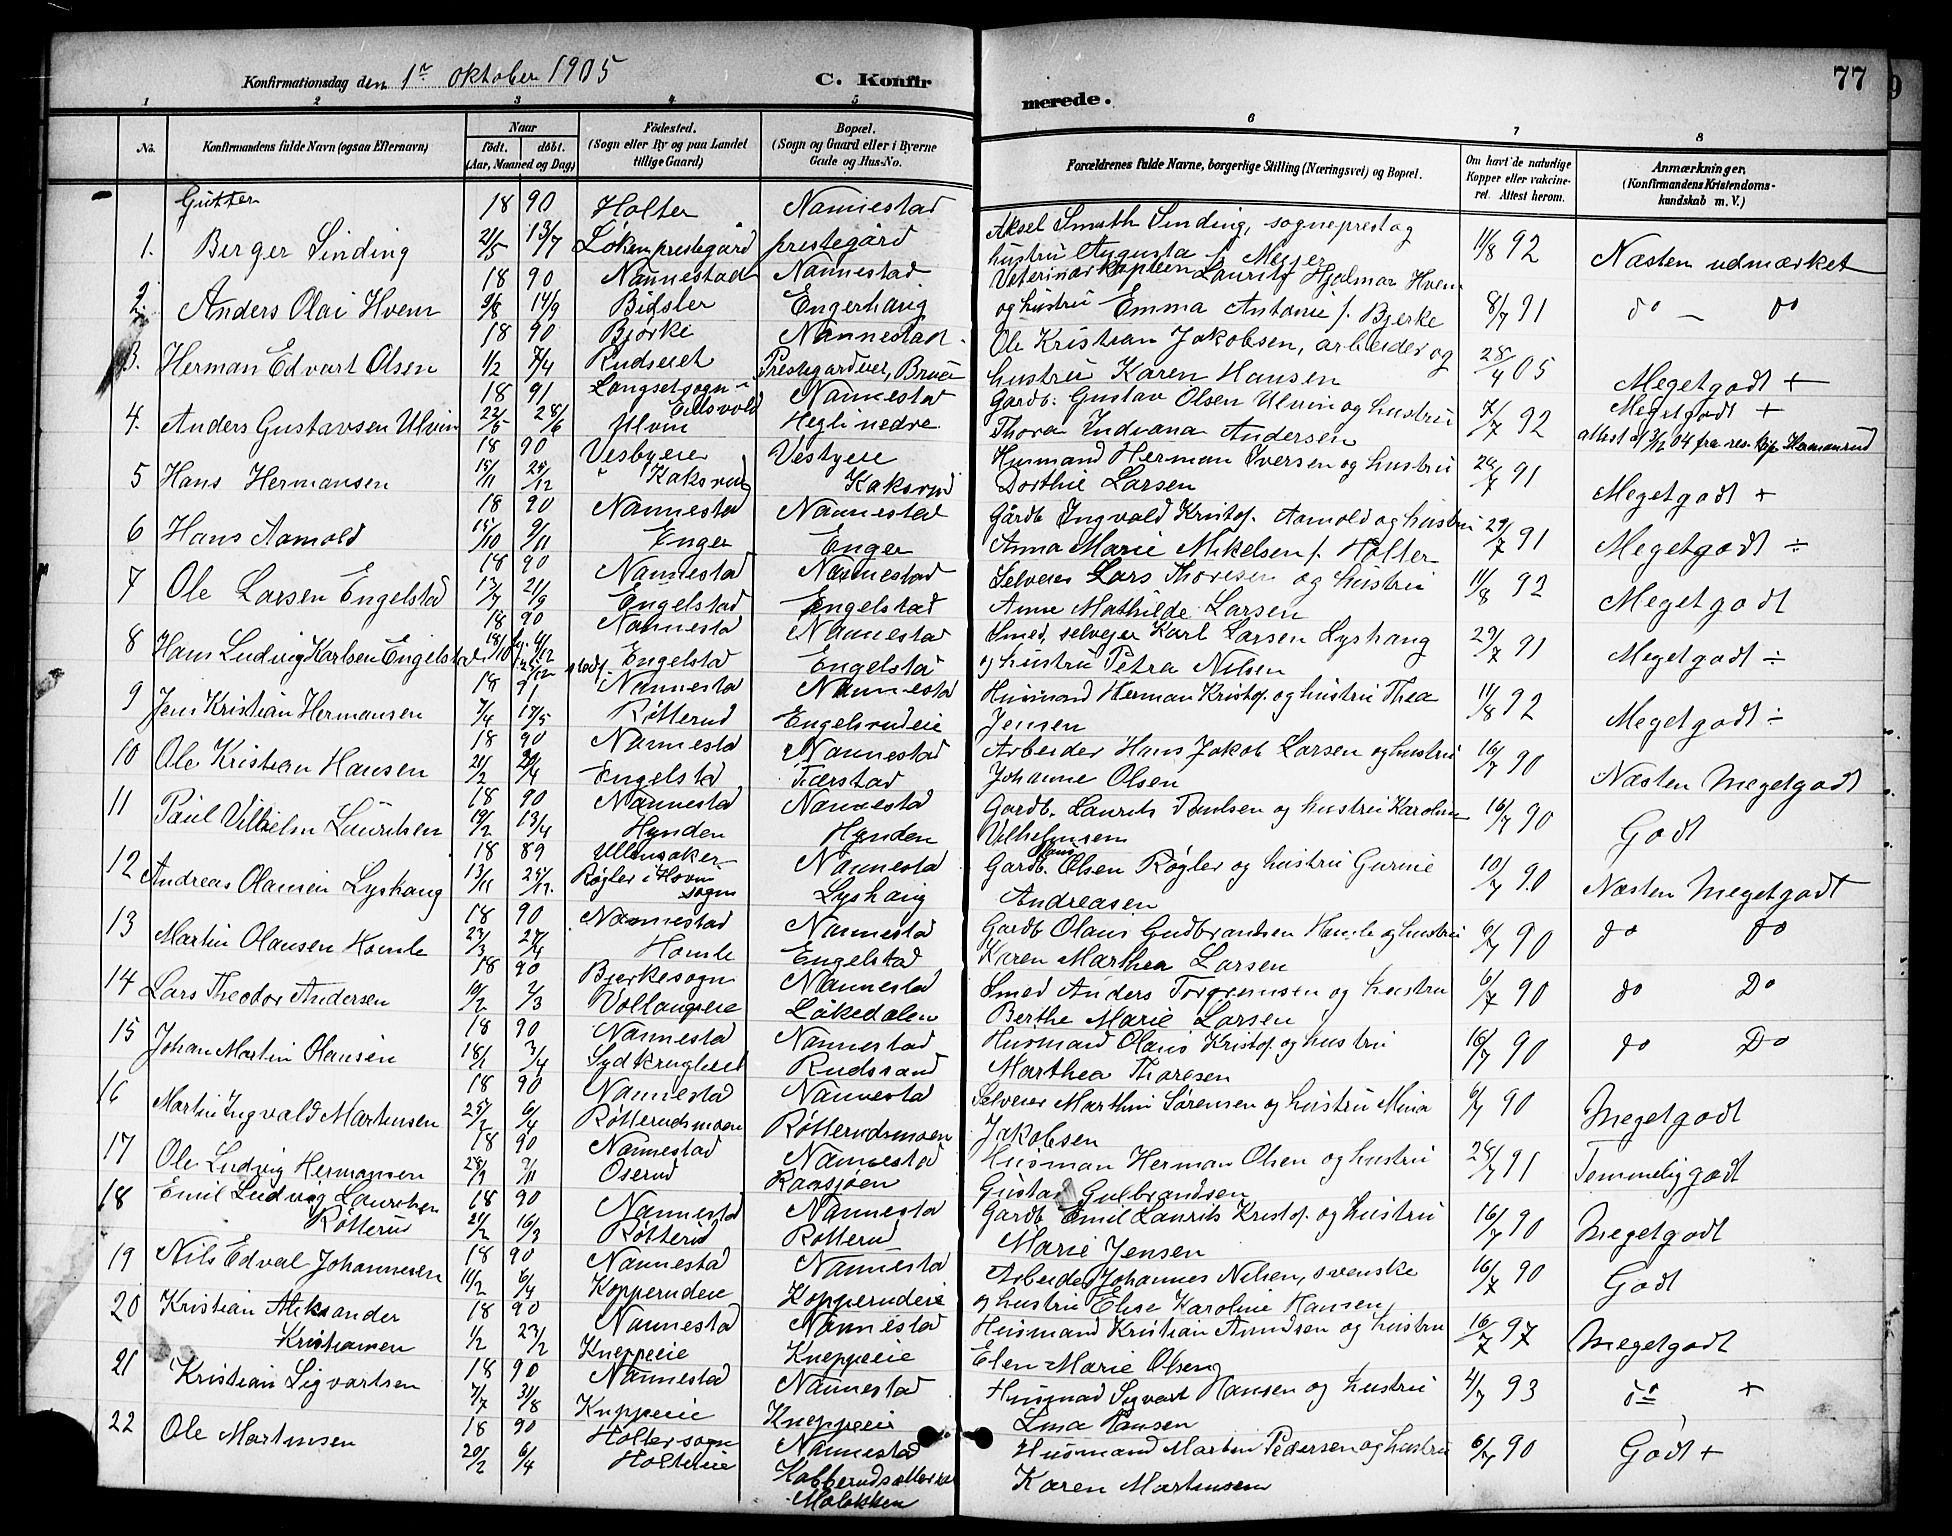 Konfirmationsdag den 1ste oktober 1905
C. Konfir
merede.
77
1 2 3 4 5 6 7 8
No.
Konfirmandens fulde Navn (ogsaa Efternavn)
Naar
født. døbt.
(Aar, Maaned og Dag)
Fødested.
(Sogn eller By og paa Landet
tillige Gaard)
Bopæl.
(Sogn og Gaard eller i Byerne
Gade og Hus-No.
Forældrenes fulde Navne, borgerlige Stilling (Næringsvei) og Bopæl.
Om havt de naturlige
Kopper eller vakcine-
ret. Attest herom.
Anmærkninger.
(Konfirmandens Kristendoms-
kundskab m. V.)
Gutter
18 90 Holter Nannestad Aksel Smith Sinding, sogneprest og
1. Berger Sinding 21/5 13/7 Løken prestegård prestegård hustru Augusta f. Meyer 11/8 92 Næsten udmærket
18 90 Nannestad Nannestad Veterinærkaptein Laurits Hjalmar Hvem
2. Anders Olai Hvem 9/8 14/9 Engerhaug og hustru Emma Antonie f. Bjerke 8/7 91 do — do
18 90 Bjørke Nannestad Ole Kristian Jakobsen, arbeider og
3. Herman Edvart Olsen 1/2 7/4 Rudseiet hustru Karen Hansen 28/4 05 Megetgodt +
18 91 Langset sogn Eidsvold Nannestad Gardb. Gustav Olsen Ulvin og hustru
4. Anders Gustavsen Ulvin 22/5 28/6 Ulvin Hegli nedre Thora Indiana Andersen 7/7 92 Megetgodt +
18 90 Vesbyeie Vesbyeie Husmand Herman Iversen og hustru
5 Hans Hermansen 15/11 Kaksrud Kaksrud Dorthie Larsen 91 Megetgodt +
18 90 Nannestad Nannestad Gårdb Ingvald Kristof. Aamold og hustru
6 Hans Aamold 15/10 9/11 Enger Enger Anna Marie Mikelsen f. Holter 29/7 91 Megetgodt ÷
18 90 Nannestad Nannestad Selveier Lars Thoresen og hustru
7 Ole Larsen Engelstad 17/7 21/9 Engelstad Engelstad Anne Mathilde Larsen 11/8 92 Megetgodt
18 90 Nannestad Nannestad Smed, selveier Karl Larsen Lyshaug
8 Hans Ludvig Karlsen Engelstad Engelstad Engelstad og hustru Petra Nilsen 29/7 91 Megetgodt ÷
18 91 Nannestad Nannestad Husmand Herman Kristof. og hustru Thea
9 Jens Kristian Hermansen 7/4 18/5 Røtterud Engelsrudeie Jensen 11/8 92 Megetgodt ÷
18 90 Nannestad Nannestad Arbeider Hans Jakob Larsen og hustru
10 Ole Kristian Hansen Engelstad Færstad Johanne Olsen 16/7 90 Næsten Megetgodt
18 90 Nannestad Nannestad Gardb. Laurits Paulsen og hustru Karoline
11 Paul Vilhelm Lauritsen 19/2 13/4 Hynden Hynden Vilhelmsen 16/7 90 Godt
18 89 Ullensaker Nannestad Gardb. Olaus Olsen Røgler og hustru Gurine
12 Andreas Olausen Lyshaug 13/11 25/12 Røgler i Hovin sogn Lyshaug Andreasen 10/7 90 Næsten Megetgodt
18 90 Nannestad Nannestad Gardb Olaus Gudbrandsen Homle og hustru
13 Martin Olausen Homle 23/3 27/4 Homle Engelstad Karen Marthea Larsen 6/7 90 do do
18 90 Bjerkesogn Nannestad Smed Anders Torgremsen og hustru
14 Lars Theodor Andersen 10/2 2/3 Løkedalen Berthe Marie Larsen 6/7 90 do Do
18 90 Nannestad Nannestad Husmand Olaus Kristof. og hustru
15 Johan Martin Olausen 18/1 3/4 Rudssand Marthea Thoresen 16/7 90 do Do
18 90 Nannestad Nannestad Selveier Marthin Sørensen og hustru Mina
16 Martin Ingvald Martinsen 25/2 6/4 Røtterudsmoen Røtterudsmoen Jakobsen 6/7 90 Megetgodt
18 90 Nannestad Nannestad Husman Herman Olsen og hustru
17 Ole Ludvig Hermansen 28/9 9/11 Oserud Raasjøen Gustava Gulbrandsen 28/7 91 Temmelig godt
18 Emil Ludvig Lauritsen 18 90 Nannestad Nannestad Gardb Emil Laurits Kristof. og hustru
Røtterud 21/2 16/3 Røtterud Røtterud Marie Jensen 16/7 90 Megetgodt
18 90 Nannestad Nannestad Arbeider Johannes Nilsen, svenske
19 Nils Edval Johannesen 11/2 6/4 Kopperudeie Kopperudeie og hustru Elise Karoline Hansen, 16/7 90 Godt
20 Kristian Aleksander 18 90 Nannestad Nannestad Husmand Kristian Amundsen og hustru
Kristiansen 1/2 23/2 Kneppeeie Kneppeeie Elen Marie Olsen 16/7 97 Megetgodt
21 Kristian Sigvartsen 18 90 Nannestad Nannestad Husmand Sigvart Hansen og hustru
7/7 31/8 Kneppeeie Kneppeeie Lina Hansen 4/7 93 do +
22 Ole Martinsen 18 90 Holtersogn Nannestad Husmand Martin Pedersen og hustru
20/2 6/4 Holtereie Karen Martinsen 6/7 90 Godt +